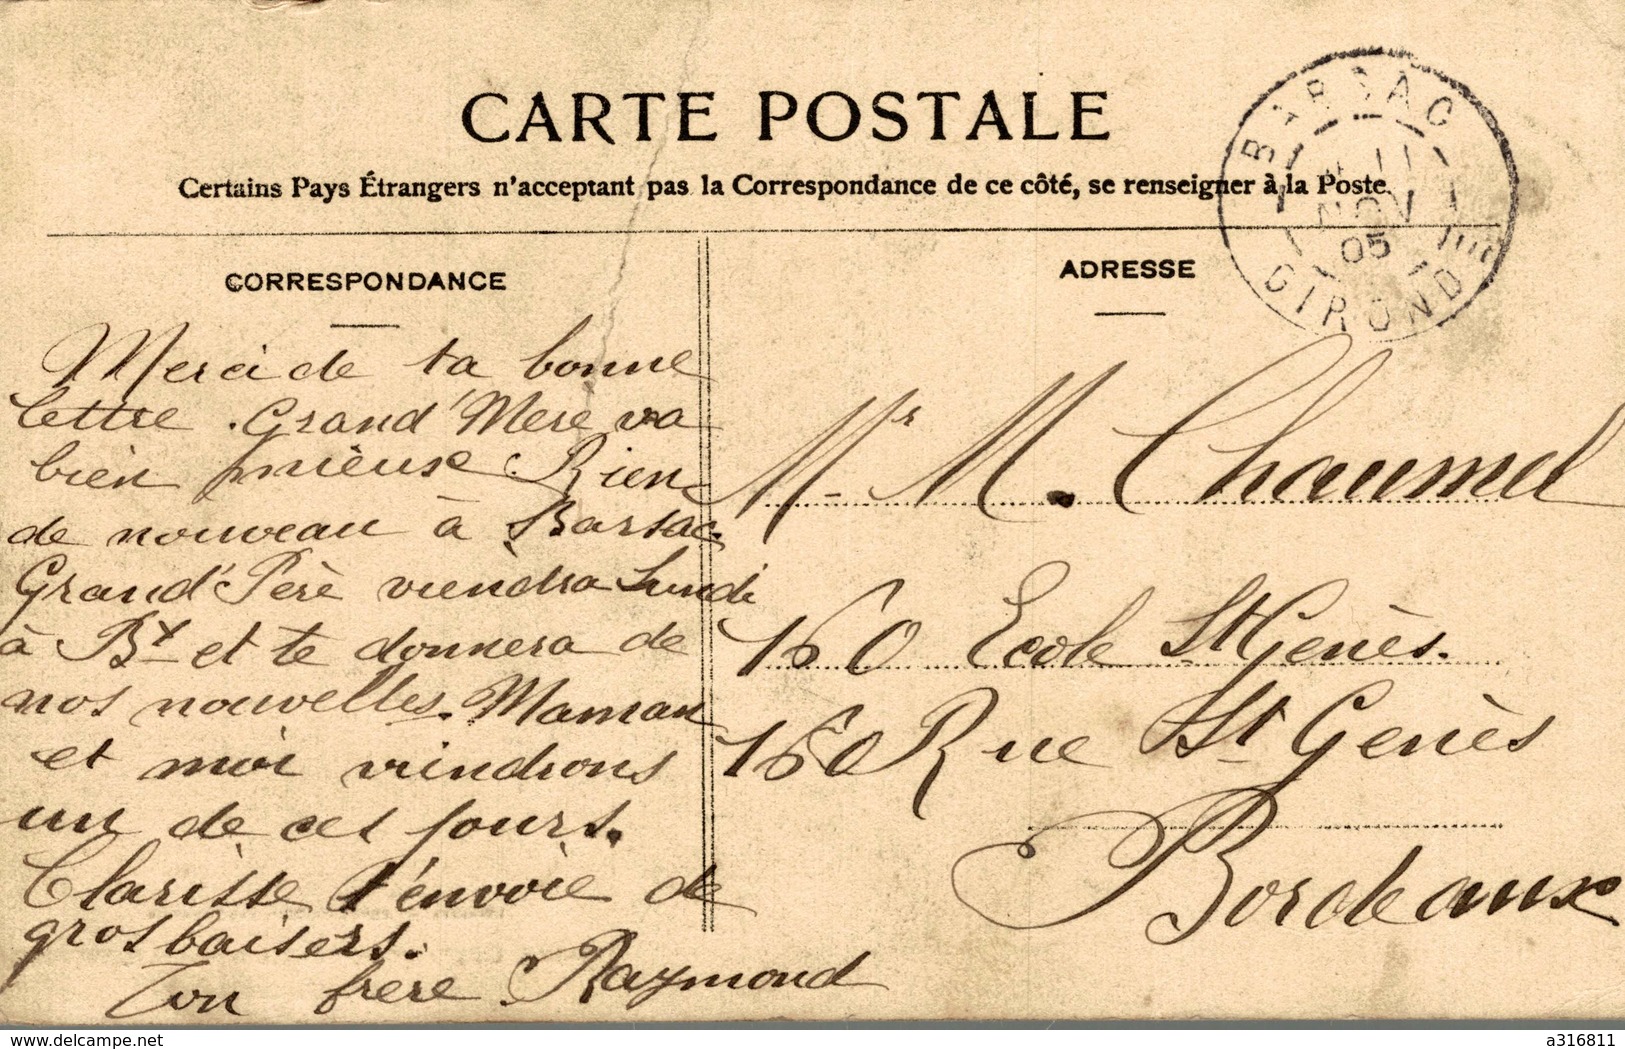 CARTE POSTALE
Certains Pays Étrangers n'acceptant pas la Correspondance de ce côté, se renseigner à la Poste.
BARSAC
11
NOV
05
GIRONDE
CORRESPONDANCE
Merci de ta bonne
lettre. Grand'Mere va
bien mieux. Rien
de nouveau à Barsac.
Grand'Père viendra Lundi
à Bx et te donnera de
nos nouvelles. Maman
et moi viendrons
un de ces jours.
Clarisse t'envoie de
gros baisers.
Ton frère Raymond
ADRESSE
Mr M. Chaumel
160 Ecole St Genès.
160 Rue St Genès
Bordeaux
www.delcampe.net
a316811